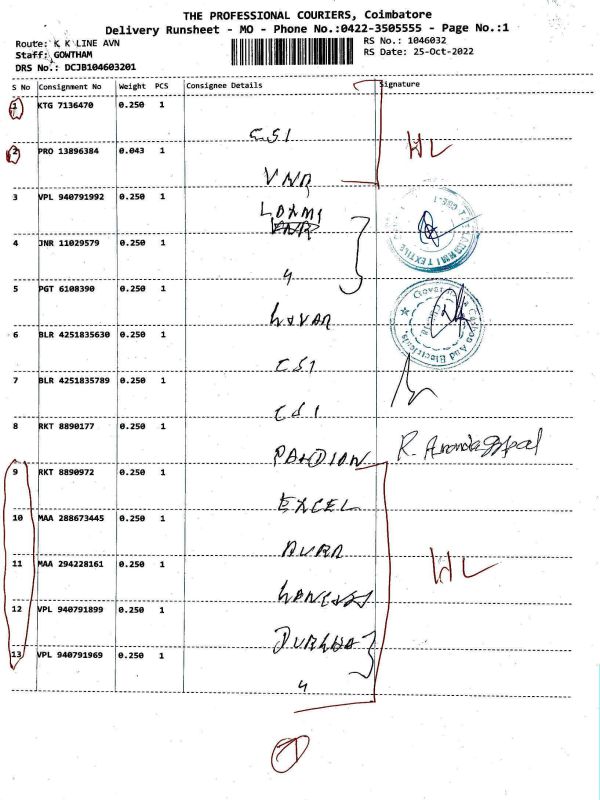 THE PROFESSIONAL COURIERS, Coimbatore
Delivery Runsheet - MO - Phone No.:0422-3505555 - Page No.:1
Route: K K LINE AVN
Staff: GOWTHAM
DRS No.: DCJB104603201
RS No.: 1046032
RS Date: 25-Oct-2022
S No Consignment No Weight PCS Consignee Details Signature
1 KTG 7136470 0.250 1
CSI
HL
2 PRO 13896384 0.043 1
VNR
3 VPL 940791992 0.250 1
LAXMI
4 JNR 11029579 0.250 1
4
5 PGT 6108390 0.250 1
6 BLR 4251835630 0.250 1
CSI
7 BLR 4251835789 0.250 1
CSI
8 RKT 8890177 0.250 1
R. Anandagopal
PANDIAN
9 RKT 8890972 0.250 1
EXCEL
10 MAA 288673445 0.250 1
AURA
11 MAA 294228161 0.250 1
HL
12 VPL 940791899 0.250 1
DURGA
13 VPL 940791969 0.250 1
4
7